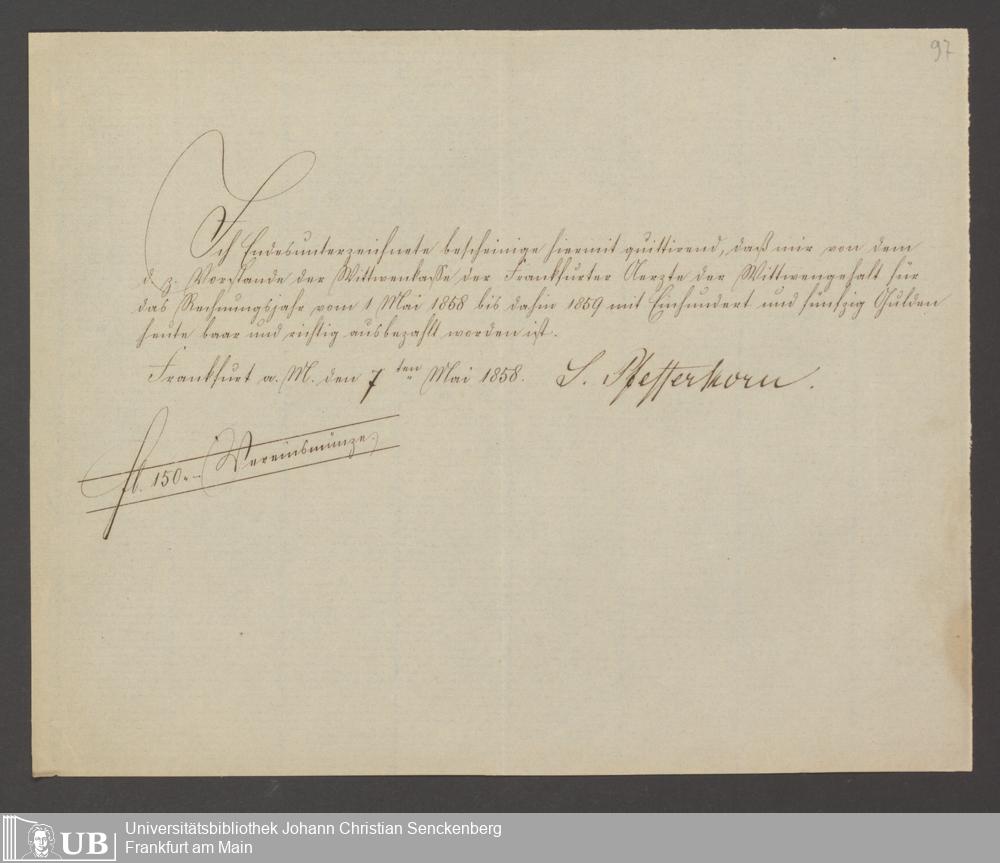 97
Ich Endesunterzeichnete bescheinige hiermit quittirend, daß mir von dem
d. z. Vorstande der Wittwenkasse der Frankfurter Aerzte der Wittwengehalt für
das Rechnungsjahr vom 1 Mai 1858 bis dahin 1859 mit Einhundert und fünfzig Gulden
heute baar und richtig ausbezahlt worden ist.
Frankfurt a. M. den 7ten Mai 1858. S. Pfefferkorn.
fl. 150.- (Vereinsmünze.)
UB Universitätsbibliothek Johann Christian Senckenberg
Frankfurt am Main